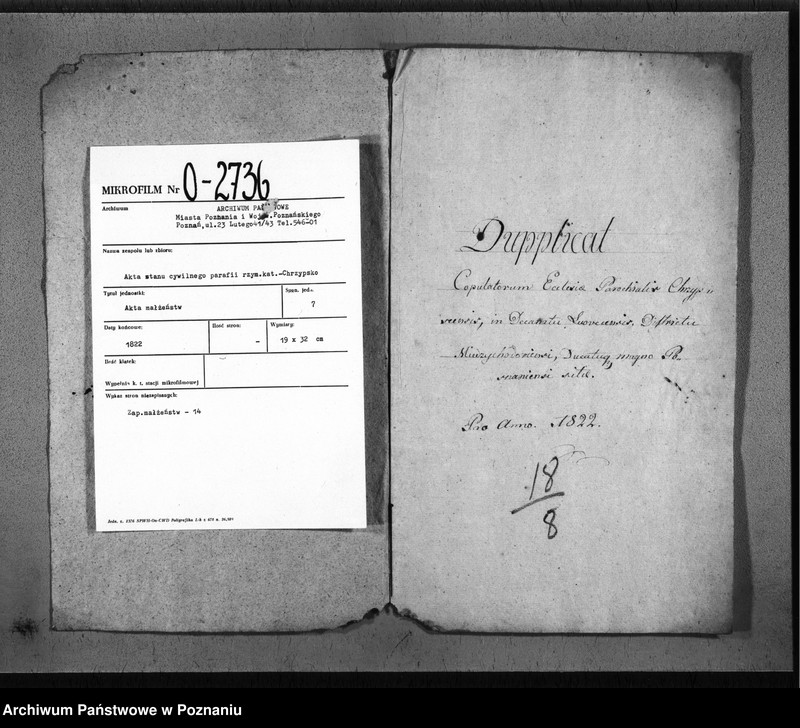 MIKROFILM Nr 0-2736
Archiwum
ARCHIWUM PAŃSTWOWE
Miasta Poznania i Wojew.Poznańskiego
Poznań,ul.23 Lutego41/43 Tel.546-01
Nazwa zespołu lub zbioru:
Akta stanu cywilnego parafii rzym.kat.-Chrzypsko
Tytuł jednostki:
Akta małżeństw
Sygn. jedn.
7
Daty końcowe:
1822
Ilość stron:
-
Wymiary:
19 x 32 cm
Ilość klatek:
Wypełnia k. t. stacji mikrofilmowej
Wykaz stron niezapisanych:
Zap.małżeństw - 14
Dupplicat
Copulatorum Eclesia Parochialis Chrzyp
scensis, in Decanatu Lwovecensis, Districtu
Miedzychodiensi, Ducatuq magno Po-
snaniensi sita.
Pro Anno. 1822.
18
8
Archiwum Państwowe w Poznaniu